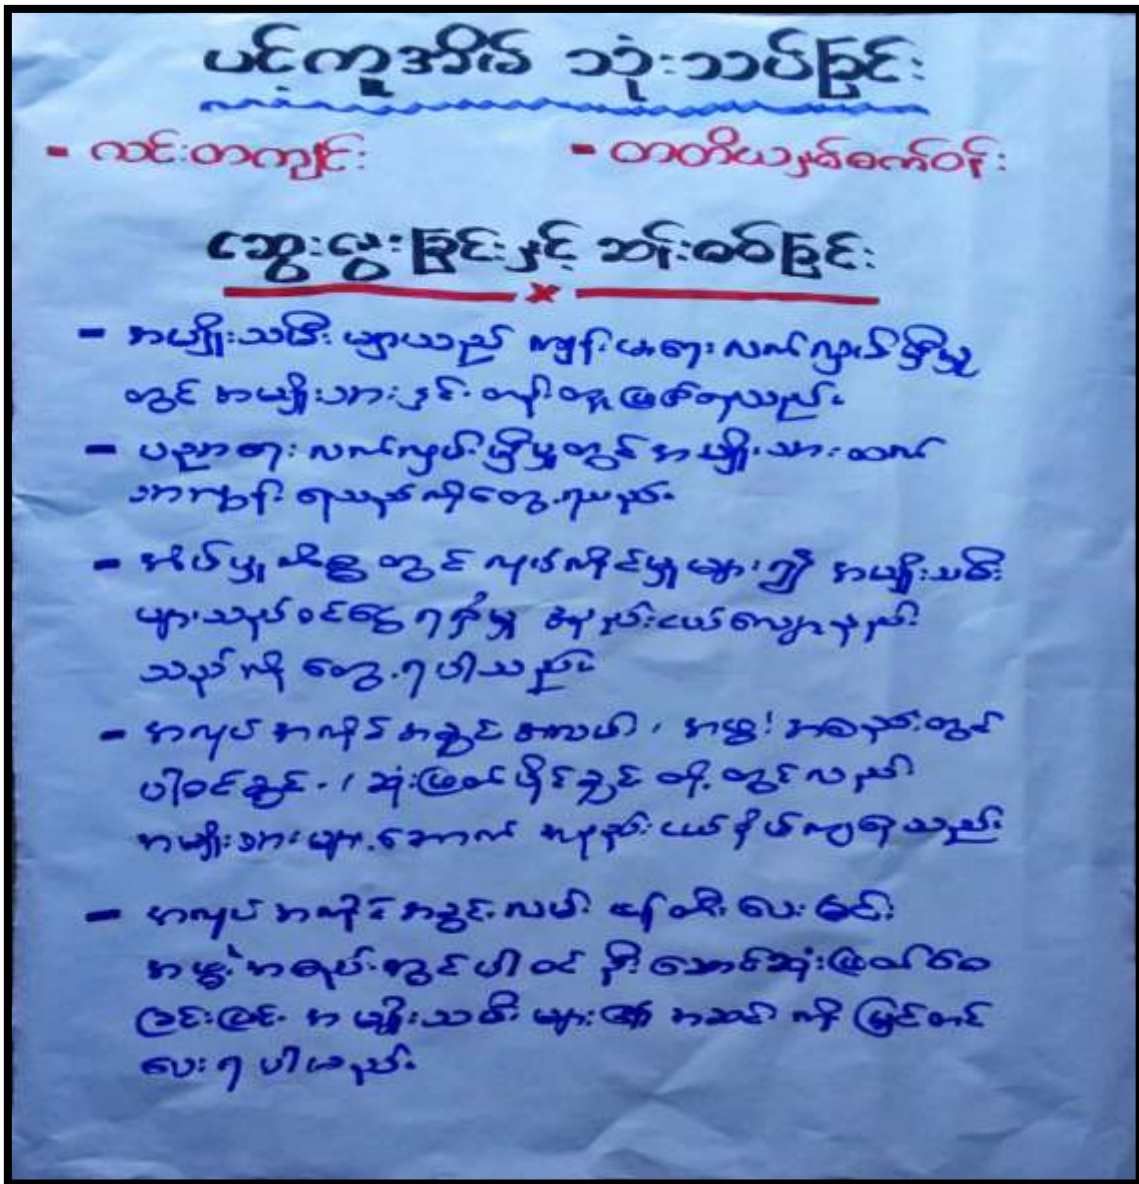 ပင့်ကူအိမ် သုံးသပ်ခြင်း
- လင်းတကျင်း - တတိယနှစ်စက်ဝန်း
ဆွေးနွေးခြင်းနှင့် ဆန်းစစ်ခြင်း
- အမျိုးသမီး များသည် ကျန်းမာရေး လက်လှမ်းမှီမှု
တွင် အမျိုးသားနှင့် တန်းတူ ဖြစ်ရသည်။
- ပညာရေး လက်လှမ်းမှီမှုတွင် အမျိုးသားထက်
အားနည်း ရသည်ကိုတွေ့ရသည်။
- အိမ်မှုကိစ္စတွင် လုပ်ကိုင်မှုများ၍ အမျိုးသမီး
များသည်ဝင်ငွေရရှိမှု နည်းငယ်လျော့နည်း
သည်ကို တွေ့ရပါသည်။
- အလုပ်အကိုင်အခွင့်အလမ်း၊ အဖွဲ့အစည်းတွင်
ပါဝင်ခွင့်၊ ဆုံးဖြတ်ပိုင်ခွင့် တို့တွင်လည်း
အမျိုးသားများအောက် အနည်းငယ်နိမ့်ကျရသည်။
- အလုပ်အကိုင်အခွင့်လမ်း ဖန်တီးပေးခြင်း
အဖွဲ့အစည်းတွင်ပါဝင်ဦးဆောင်ဆုံးဖြတ်စေ
ခြင်းဖြင့် အမျိုးသမီးများ၏ အဆင့်ကို မြှင့်တင်
ပေးရပါမည်။